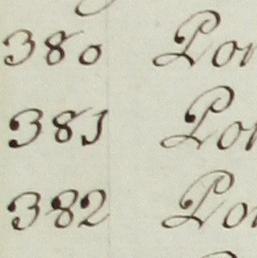 380 Por
381 Por
382 Por